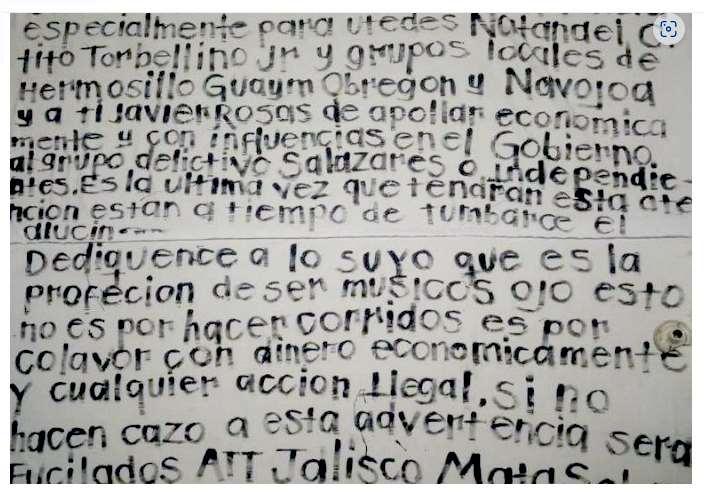 especialmente para utedes Natandel C
tito Torbellino Jr y grupos locales de
Hermosillo Guaym Obregon y Navojoa
y a ti Javier Rosas de apollar economica
mente y con influencias en el Gobierno.
al grupo delictivo Salazares o independie-
ntes. Es la ultima vez que tendran esta ate
ncion estan a tiempo de tumbarce el
alucin---
Dediquence a lo suyo que es la
profecion de ser musicos ojo esto
no es por hacer corridos es por
colavor con dinero economicamente
y cualquier accion Ilegal, si no
hacen cazo a esta advertencia sera
Fucilados ATT Jalisco Mata Sal